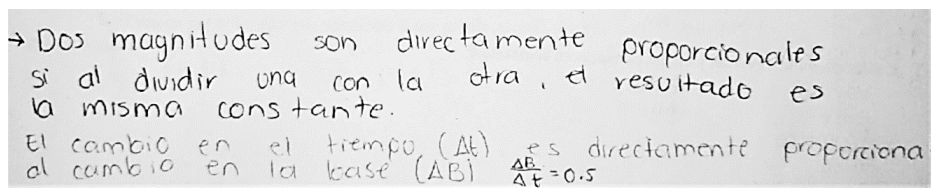 → Dos magnitudes son directamente proporcionales
si al dividir una con la otra, el resultado es
la misma constante.
El cambio en el tiempo (Δt) es directamente proporciona
al cambio en la base (ΔB) ΔB/Δt = 0.5